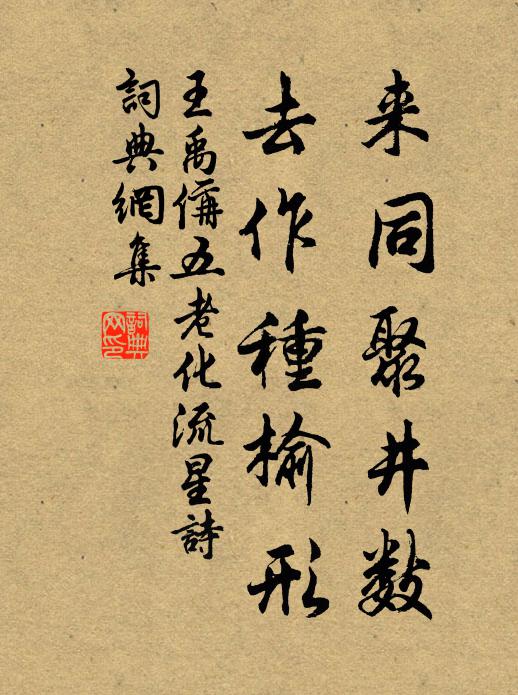 来同聚井數
去作種榆形
王禹偁五老化流星詩
詞典網集
詞典网印